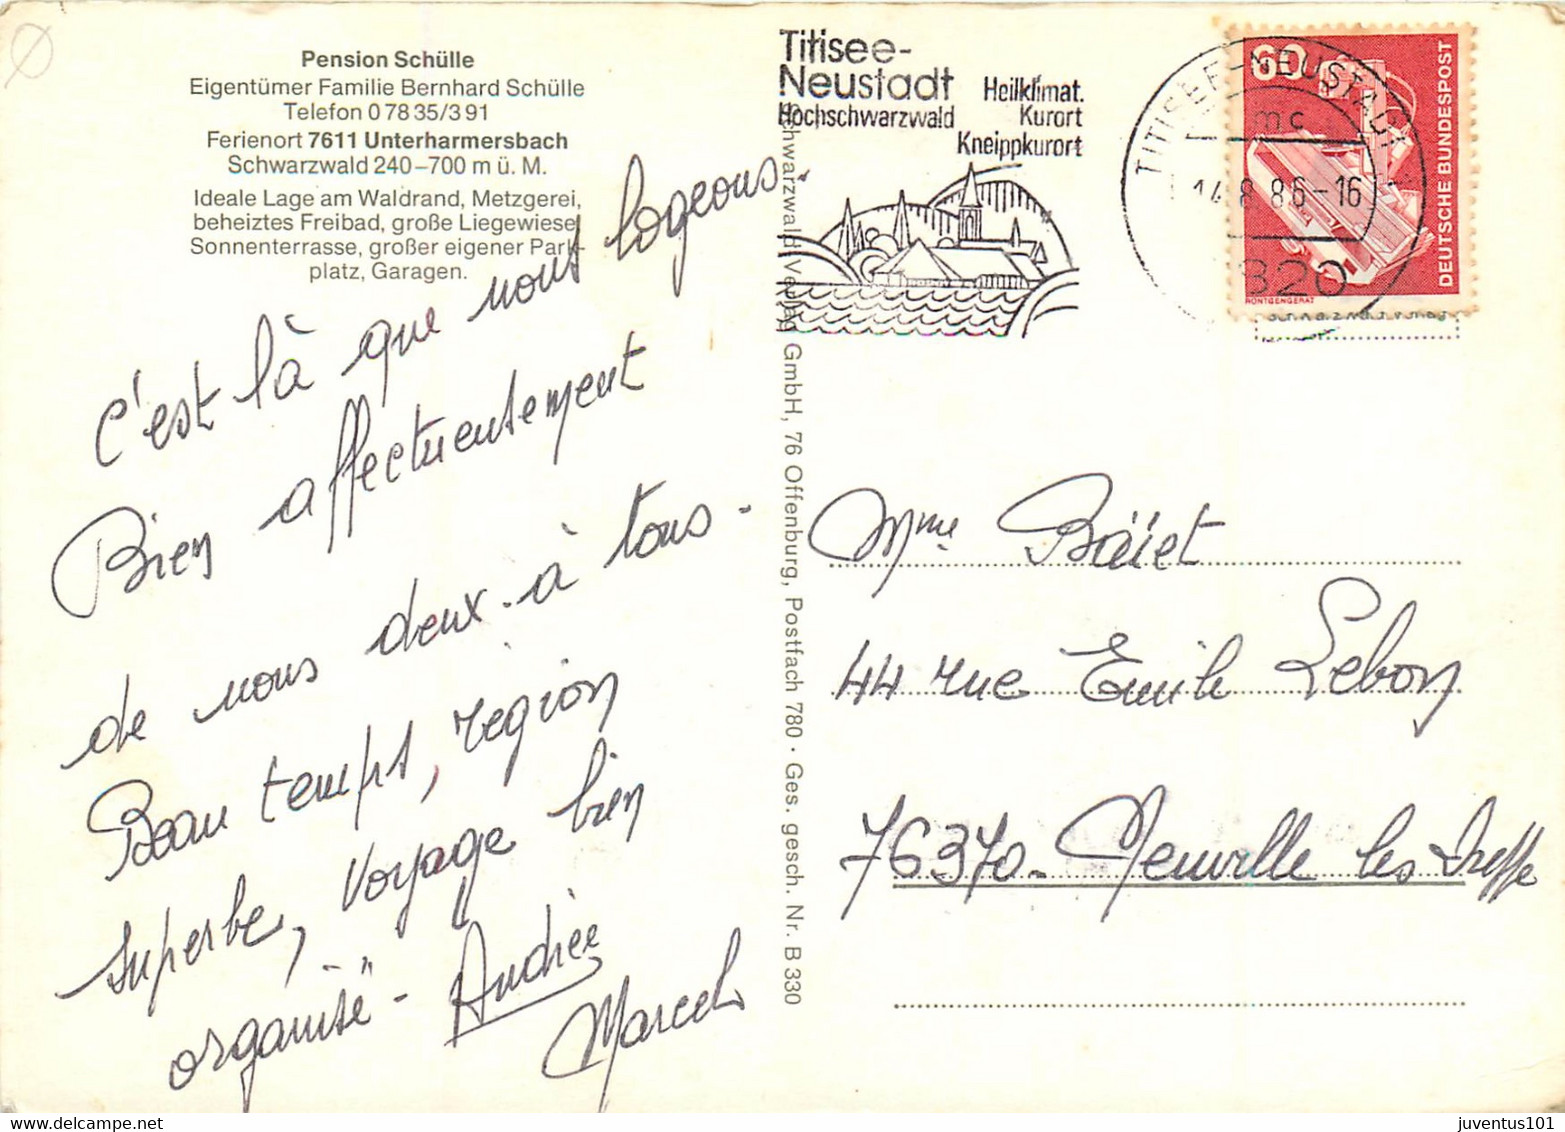 Pension Schülle
Eigentümer Familie Bernhard Schülle
Telefon 0 78 35/3 91
Ferienort 7611 Unterharmersbach
Schwarzwald 240–700 m ü. M.
Ideale Lage am Waldrand, Metzgerei,
beheiztes Freibad, große Liegewiese,
Sonnenterrasse, großer eigener Park-
platz, Garagen.
c'est là que nous logeons.
Bien affectueusement
de nous deux à tous.
Beau temps, région
superbe, voyage bien
organisé -
Andrée
Marcel
Schwarzwald Verlag GmbH, 76 Offenburg, Postfach 780 · Ges. gesch. Nr. B 330
Titisee-
Neustadt
Hochschwarzwald
Heilklimat.
Kurort
Kneippkurort
TITISEE-NEUSTADT
mc
14.8.86-16
7820
60
DEUTSCHE BUNDESPOST
RÖNTGENGERÄT
Mme
44 rue Emile Lebon
76370. Neuville les Dieppe
juventus101